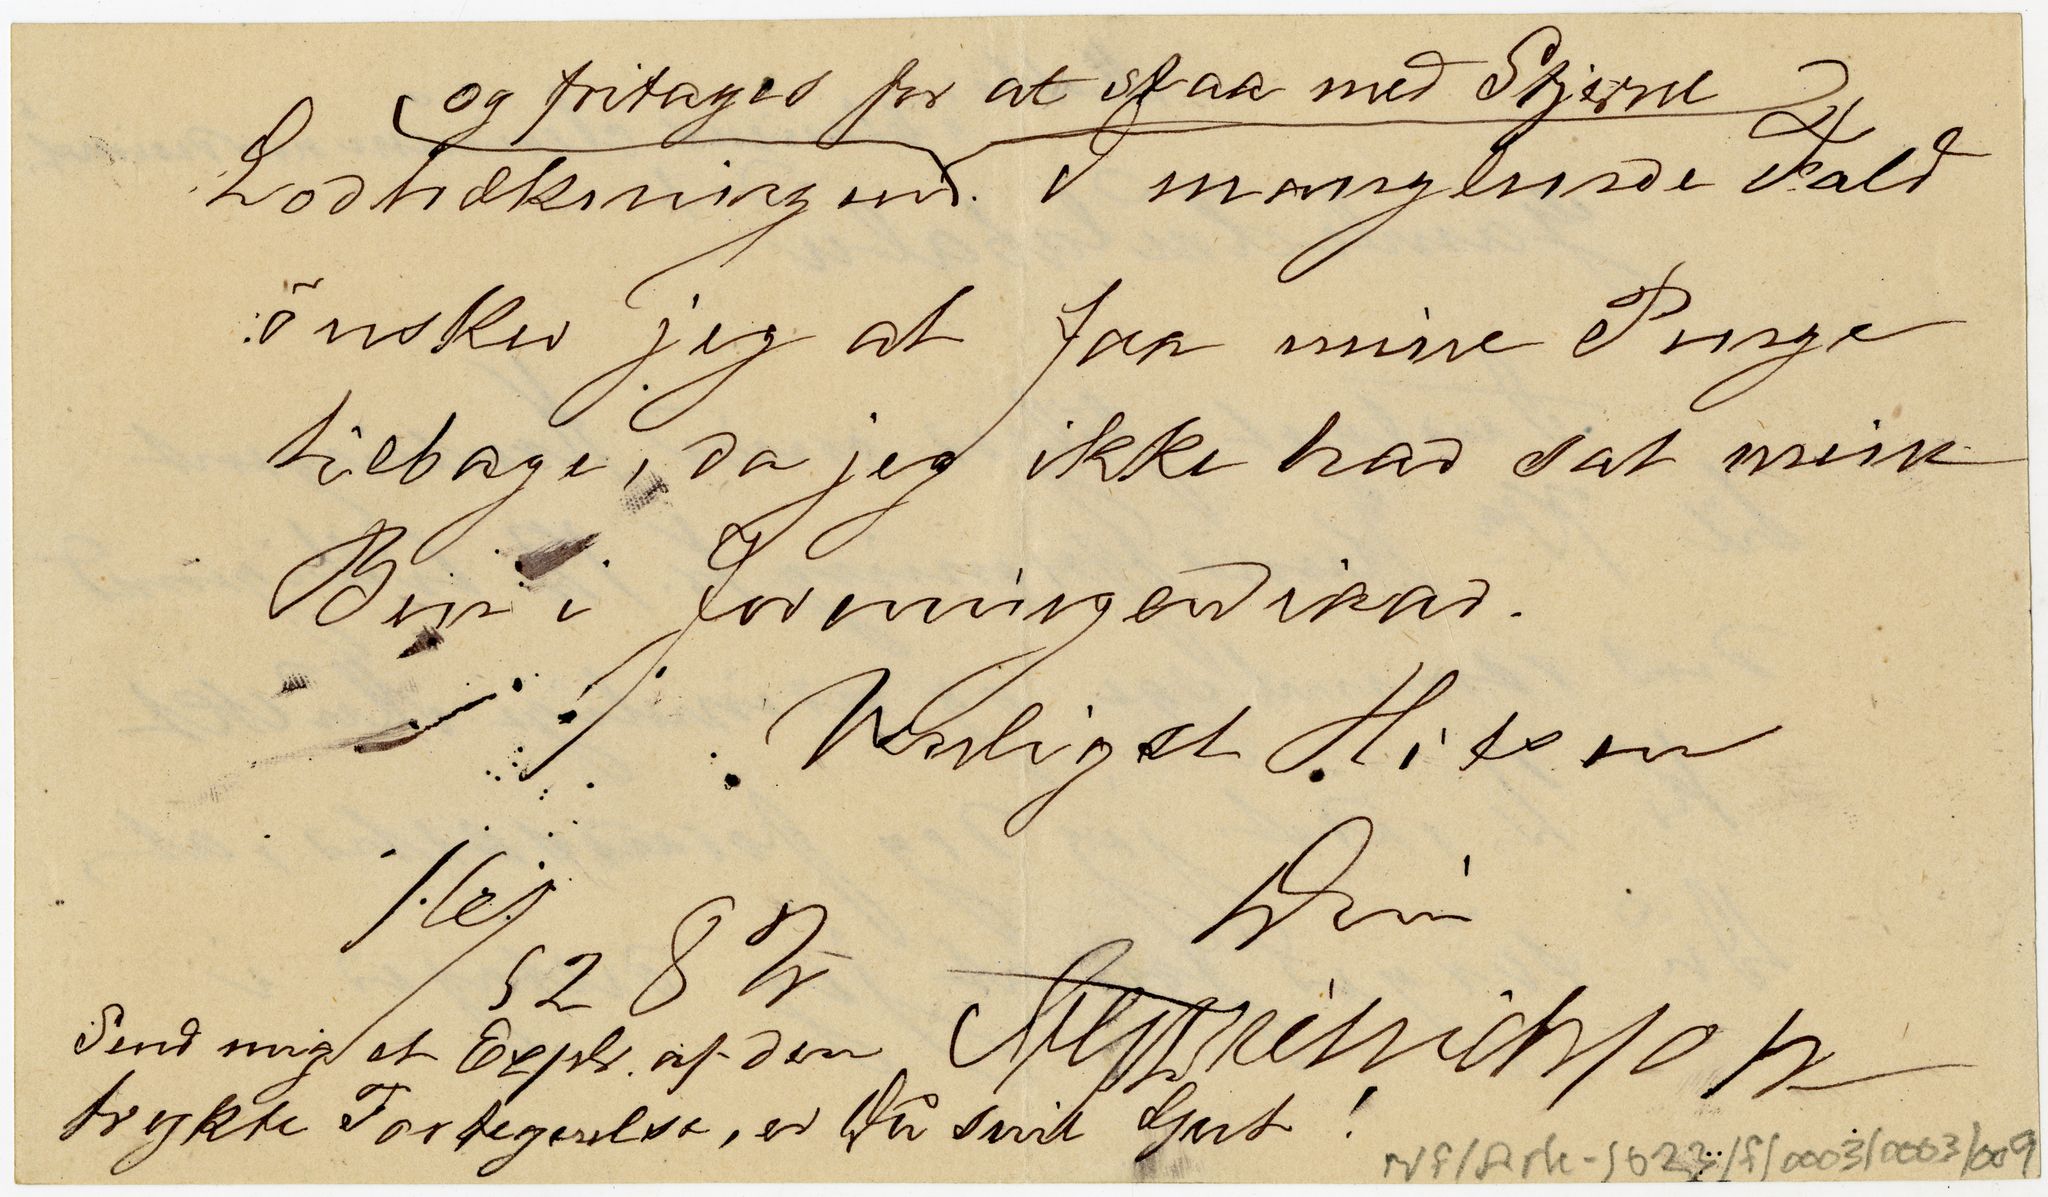 og fritages for at staa med Stjerne
Lodtrækningen. I manglende Fald
önsker jeg at faa mine Penge
tilbage, da jeg ikke har sat mine
Ben i Foreningen iaar.
Venligst Hilsen
Din
52 8
Send mig et Expl. af den
trykte Fortegnelse, er Du snil Gut!
NF/Ark-1022/f/0003/0003/009